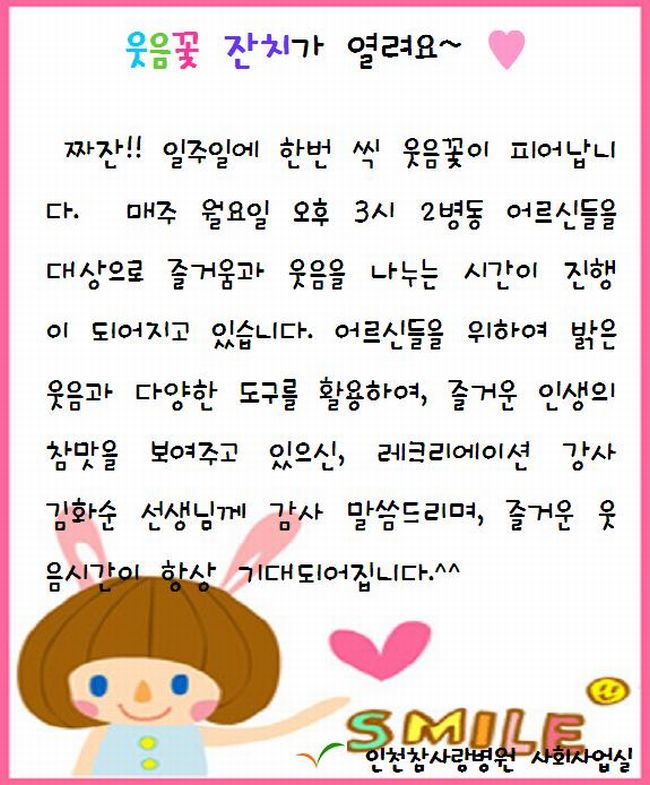 웃음꽃 잔치가 열려요~
짜잔!! 일주일에 한번 씩 웃음꽃이 피어납니
다. 매주 월요일 오후 3시 2병동 어르신들을
대상으로 즐거움과 웃음을 나누는 시간이 진행
이 되어지고 있습니다. 어르신들을 위하여 밝은
웃음과 다양한 도구를 활용하여, 즐거운 인생의
참맛을 보여주고 있으신, 레크리에이션 강사
김화순 선생님께 감사 말씀드리며, 즐거운 웃
음시간이 항상 기대되어집니다.^^
SMILE
인천참사랑병원 사회사업실